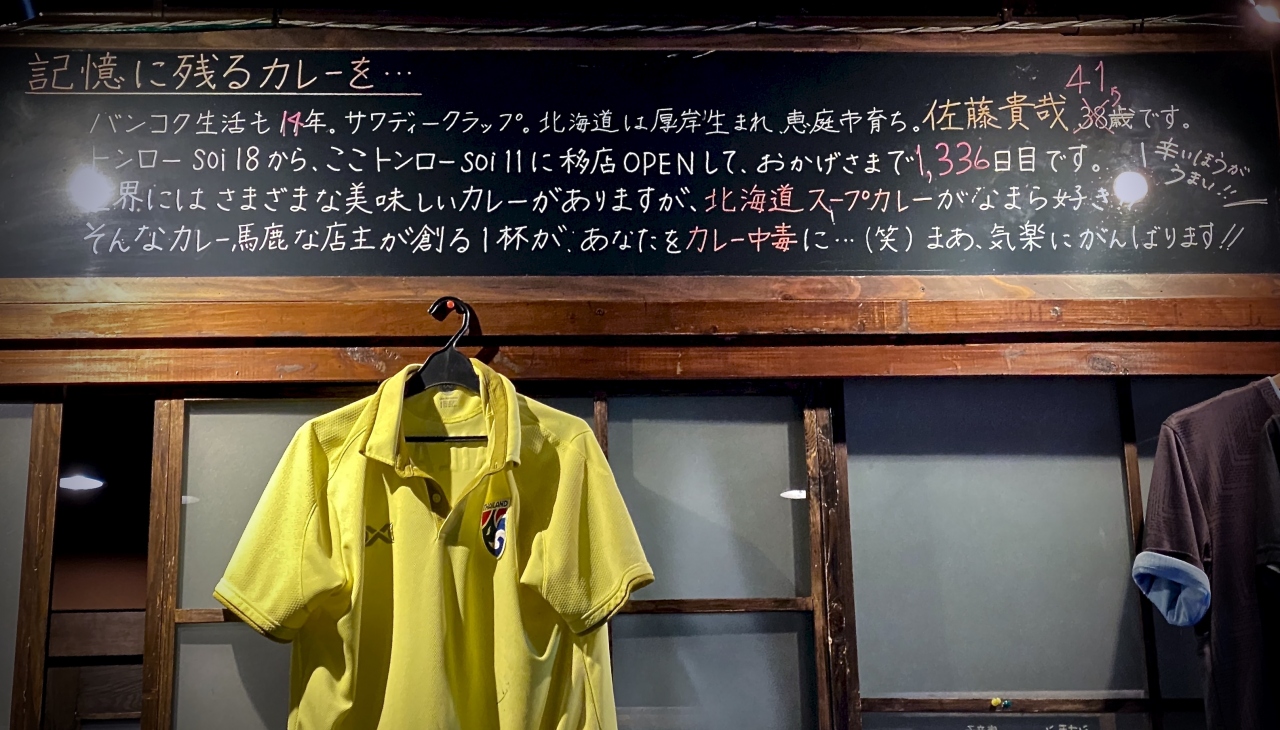 記憶に残るカレーを…
バンコク生活も14年。サワディークラップ。北海道は厚岸生まれ、恵庭市育ち。佐藤貴哉 38歳です。
41
トンロー soi 18 から、ここトンロー soi 11 に移店OPENして、おかげさまで1,336日目です。
世界にはさまざまな美味しいカレーがありますが、北海道スープカレーがなまら好き
辛いほうが
うまい!!
そんなカレー馬鹿な店主が創る1杯が、あなたをカレー中毒に…(笑) まあ、気楽にがんばります!!